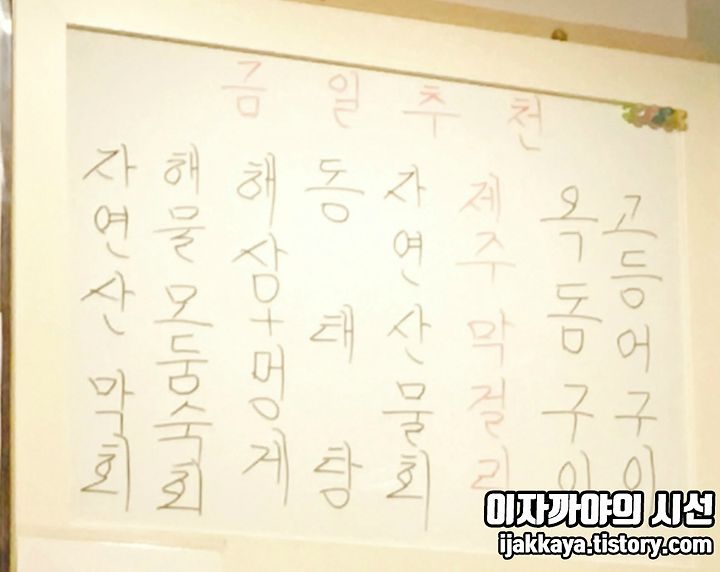 금일추천
자연산 막회
해물모둠숙회
해삼+멍게
동태탕
자연산물회
제주막걸리
옥돔구이
고등어구이
이자까야의 시선
ijakkaya.tistory.com